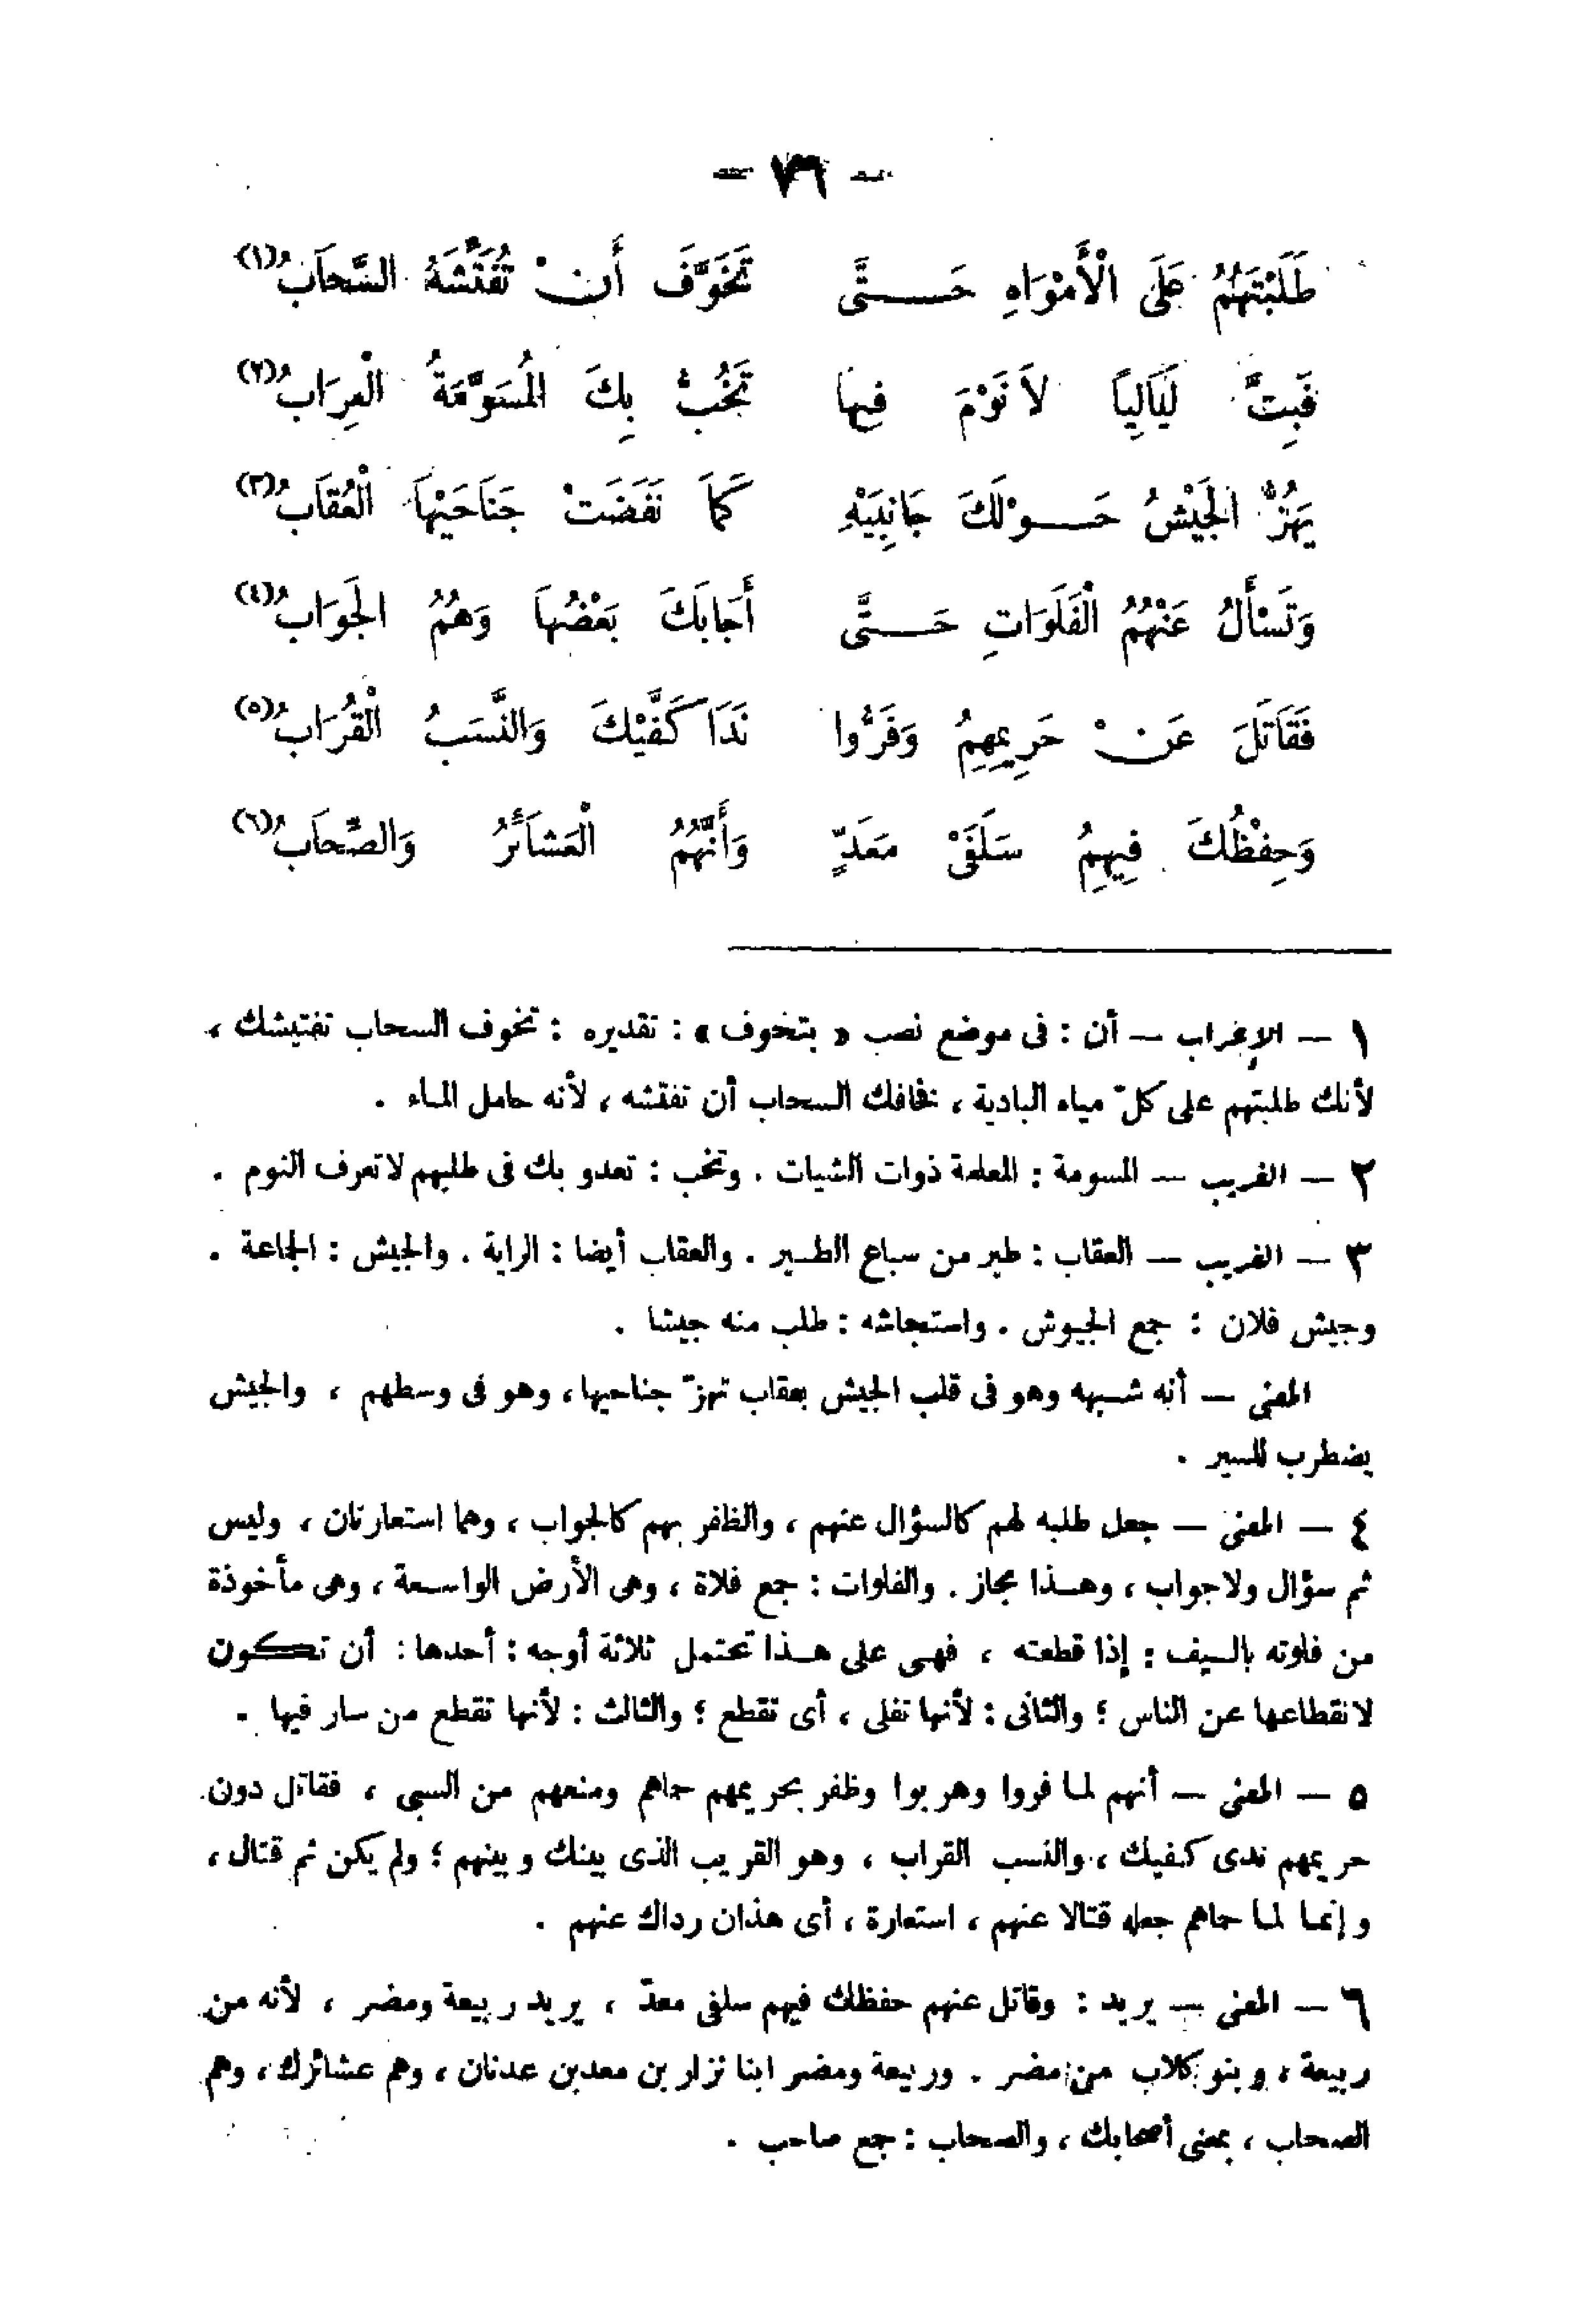 – ٧٦ –
طَلَبْتَهُمُ عَلَى الْأَمْوَاهِ حَـــتَّى تَخَوَّفَ أَنْ تُفَتِّشَهُ السَّحَابُ(١)
فَبِتَّ لَيَالِياً لاَ نَوْمَ فِيهَا تَخُبُّ بِكَ الْمُسَوَّمَةُ الْعِرَابُ(٢)
يَهُزُّ الْجَيْشُ حَـــوْلَكَ جَانِبَيْهِ كَمَا نَفَضَتْ جَنَاحَيْهَا الْعُقَابُ(٣)
وَتَسْأَلُ عَنْهُمُ الْفَلَوَاتِ حَـــتَّى أَجَابَكَ بَعْضُهَا وَهُمُ الْجَوَابُ(٤)
فَقَاتَلَ عَنْ حَرِيمِهِمُ وَفَرُّوا نَدَا كَفَّيْكَ وَالنَّسَبُ الْقُرَابُ(٥)
وَحِفْظُكَ فِيهِمُ سَلَفَىْ مَعَدٍّ وَأَنَّهُمُ الْعَشَائِرُ وَالصِّحَابُ(٦)
١ – الإعراب – أن : فى موضع نصب « بتخوف » : تقديره : تخوف السحاب تفتيشك ،
لأنك طلبتهم على كلّ مياه البادية ، فخافك السحاب أن تفتشه ، لأنه حامل الماء .
٢ – الغريب – المسومة : المعلمة ذوات الشيات . وتخب : تعدو بك فى طلبهم لا تعرف النوم .
٣ – الغريب – العقاب : طير من سباع الطـير . والعقاب أيضا : الراية . والجيش : الجماعة .
وجيش فلان : جمع الجيوش . واستجاشه : طلب منه جيشا .
المعنى – أنه شـبهه وهو فى قلب الجيش بعقاب تهزّ جناحيها ، وهو فى وسطهم ، والجيش
يضطرب للسير .
٤ – المعنى – جعل طلبه لهم كالسؤال عنهم ، والظفر بهم كالجواب ، وهما استعارتان ، وليس
ثم سؤال ولا جواب ، وهـــذا مجاز . والفلوات : جمع فلاة ، وهى الأرض الواسـعة ، وهى مأخوذة
من فلوته بالسيف : إذا قطعته ، فهـى على هـــذا تحتمل ثلاثة أوجه : أحدها : أن تكون
لانقطاعها عن الناس ؛ والثانى : لأنها تفلى ، أى تقطع ؛ والثالث : لأنها تقطع من سار فيها .
٥ – المعنى – أنهم لما فروا وهربوا وظفر بحريمهم حماهم ومنعهم من السبى ، فقاتل دون
حريمهم ندى كفيك ، والنسب القراب ، وهو القريب الذى بينك وبينهم ؛ ولم يكن ثم قتال ،
وإنما لما حماهم جعله قتالا عنهم ، استعارة ، أى هذان رداك عنهم .
٦ – المعنى – يريد : وقاتل عنهم حفظك فيهم سلفى معدّ ، يريد ربيعة ومضر ، لأنه من
ربيعة ، وبنو كلاب من مضر . وربيعة ومضر ابنا نزار بن معد بن عدنان ، وهم عشائرك ، وهم
الصحاب ، بمعنى أصحابك ، والصحاب : جمع صاحب .